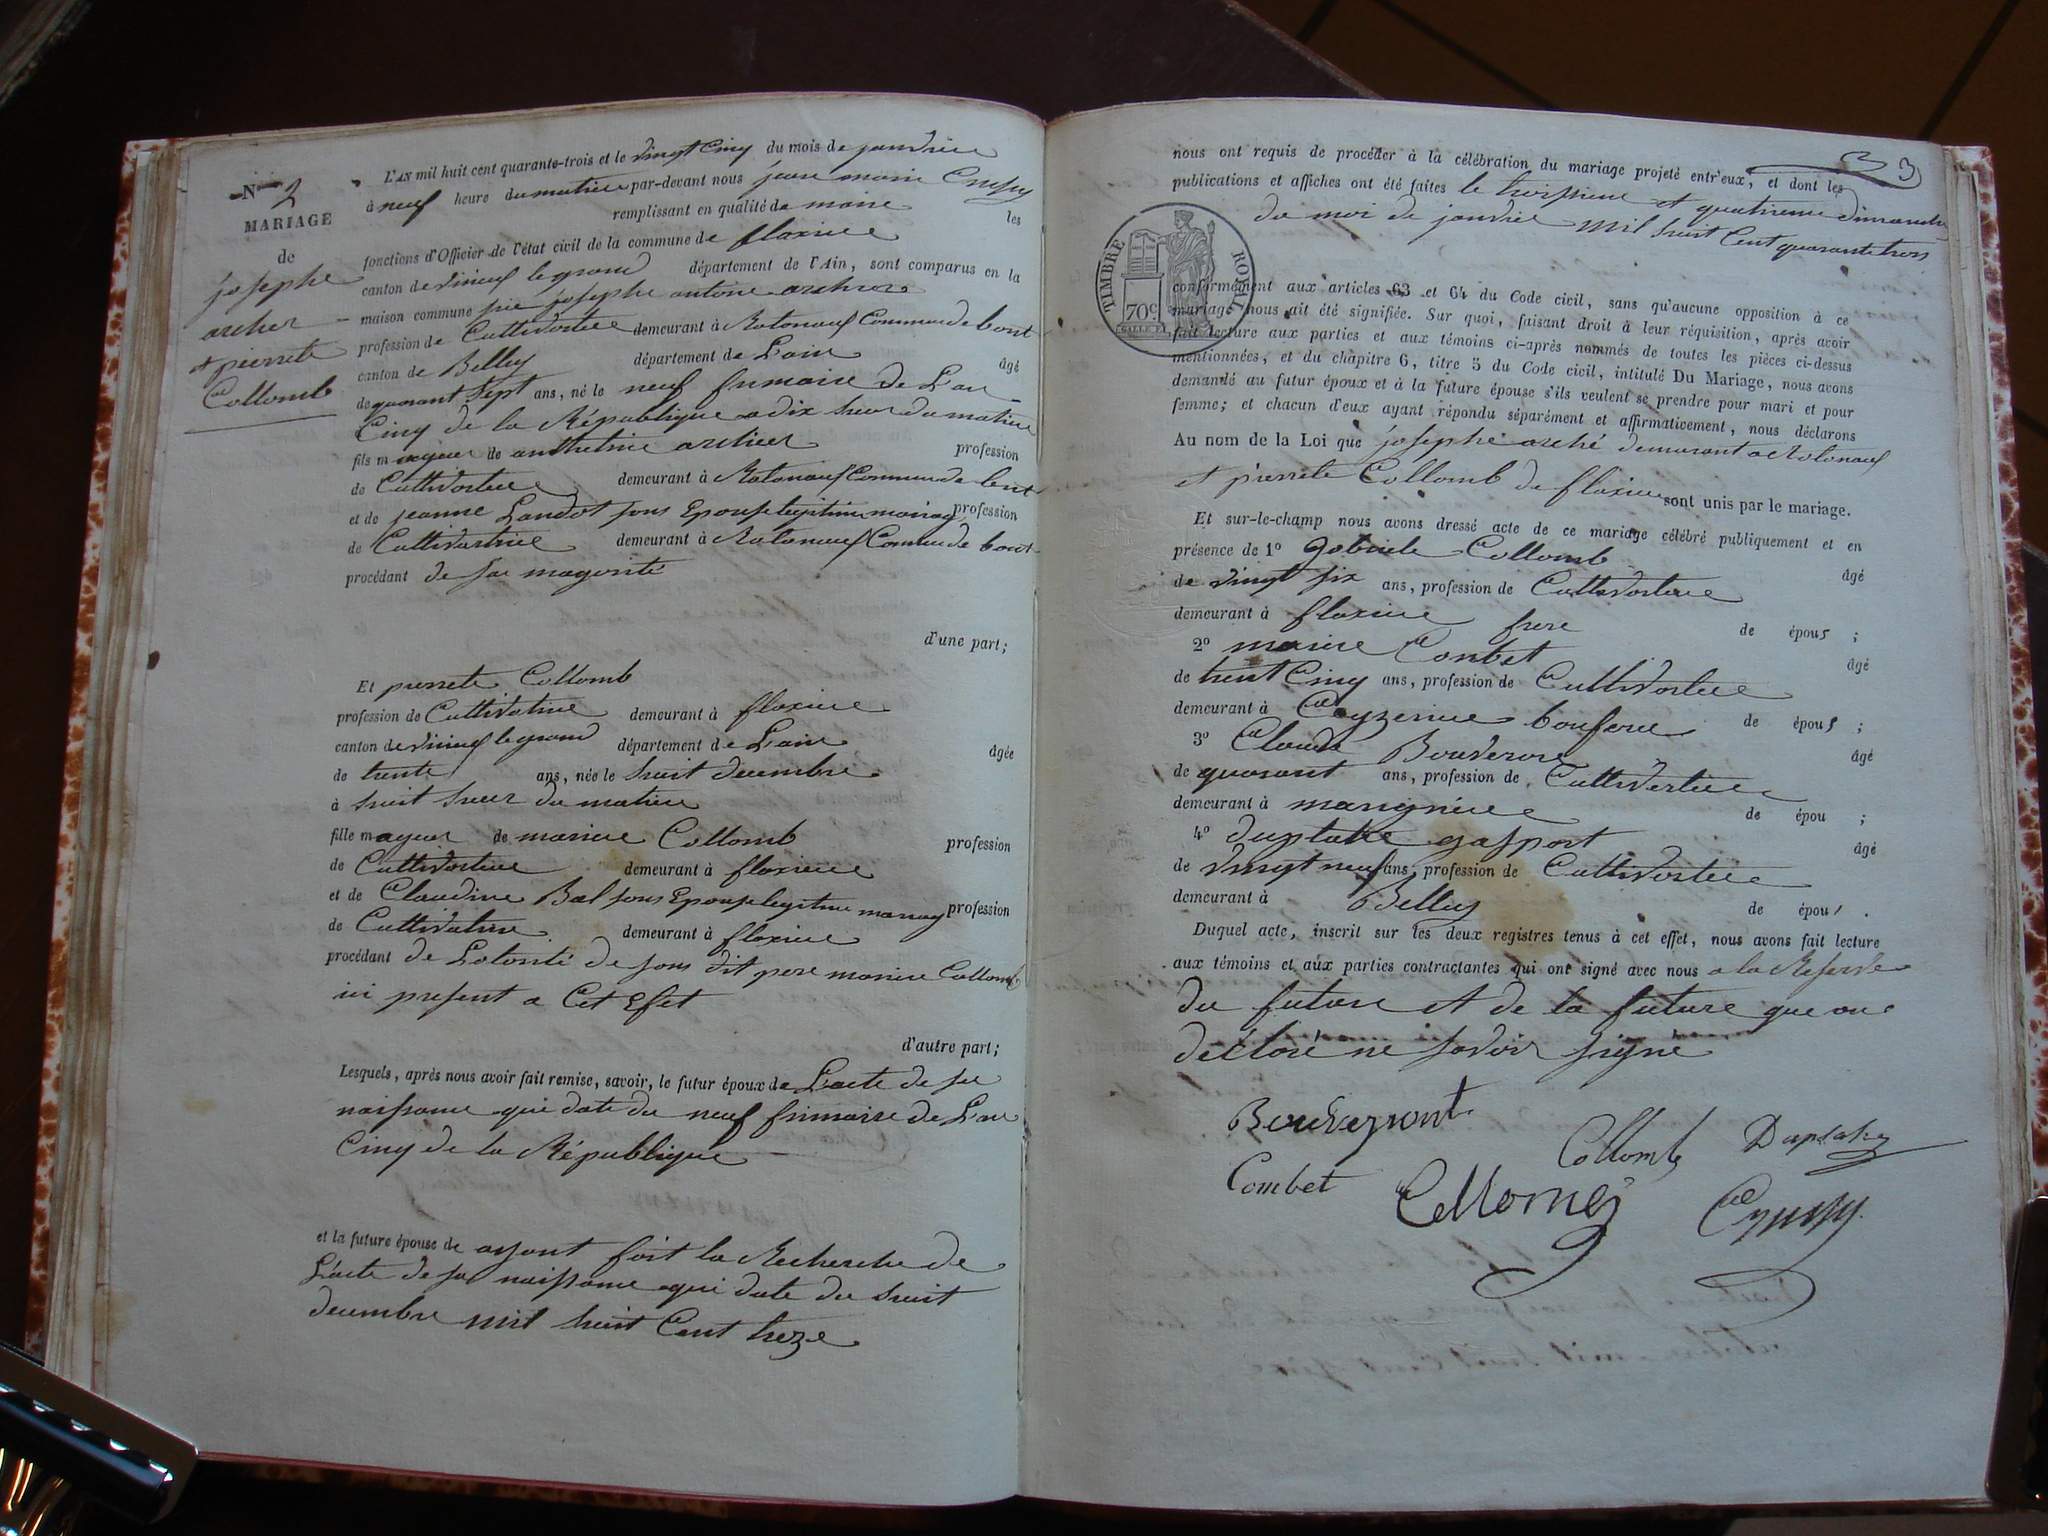 N° 2
MARIAGE
de
josephe
archer
et pierrete
Collomb
L'AN mil huit cent quarante-trois et le vingt Cinq du mois de janvier
à neuf heure du matin par-devant nous jean marie
remplissant en qualité de maire les
fonctions d'Officier de l'état civil de la commune de flaxieu
canton de virieu le grand département de l'Ain, sont comparus en la
maison commune josephe antoine
profession de Cultivateur demeurant à Commune de
canton de Belley département de Lain âgé
de quarant Sept ans, né le neuf frimaire de Lan
Cinq de la République a dix heur du matin
fils mageur de anthelme
de Cultivateur demeurant à Commune de profession
et de jeanne Landot sons Epouse legitime profession
de Cultivatrice demeurant à Commune de
procédant de sa magorité
d'une part;
Et pierrete Collomb
profession de Cultivatrice demeurant à flaxieu
canton de virieu le grand département de Lain
de trente ans, née le huit decembre âgée
à huit heur du matin
fille mageur de Collomb
de Cultivateur demeurant à flaxieu profession
et de Claudine Bal sons Epouse legitime profession
de Cultivatrice demeurant à flaxieu
procédant de Lotorité de sons dit pere Collomb
ici present a Cet Efet
d'autre part;
Lesquels, après nous avoir fait remise, savoir, le futur époux de Lacte de sa
naissance qui date du neuf frimaire de Lan
Cinq de la République
et la future épouse de ayant fait la Recherche de
Lacte de sa naissance qui date du huit
decembre mil huit Cent treze
3
nous ont requis de procéder à la célébration du mariage projeté entr'eux, et dont les
publications et affiches ont été faites le troisieme et quatrieme dimanche
du moi de janvier mil huit Cent quarante trois
TIMBRE ROYAL
70c
conformément aux articles 63 et 64 du Code civil, sans qu'aucune opposition à ce
mariage nous ait été signifiée. Sur quoi, faisant droit à leur réquisition, après avoir
fait lecture aux parties et aux témoins ci-après nommés de toutes les pièces ci-dessus
mentionnées, et du chapitre 6, titre 5 du Code civil, intitulé Du Mariage, nous avons
demandé au futur époux et à la future épouse s'ils veulent se prendre pour mari et pour
femme; et chacun d'eux ayant répondu séparément et affirmativement, nous déclarons
Au nom de la Loi que josephe arché demeurant a
et pierrete Collomb de flaxieu sont unis par le mariage.
Et sur-le-champ nous avons dressé acte de ce mariage célébré publiquement et en
présence de 1° Gabriele Collomb
de vingt six ans, profession de Cultivateur âgé
demeurant à flaxieu frere de épous ;
2° Conbet
de trent Cinq ans, profession de Cultivateur âgé
demeurant à Ceyzerieu de épous ;
3° Claude
de quarant ans, profession de Cultivateur âgé
demeurant à marignieu de épou ;
4° gaspart
de vingt neuf ans, profession de Cultivateur âgé
demeurant à Belley de épou .
Duquel acte, inscrit sur les deux registres tenus à cet effet, nous avons fait lecture
aux témoins et aux parties contractantes qui ont signé avec nous a la Reserve
du future et de la future que on
déclaré ne savoir signé
Collomb
Combet